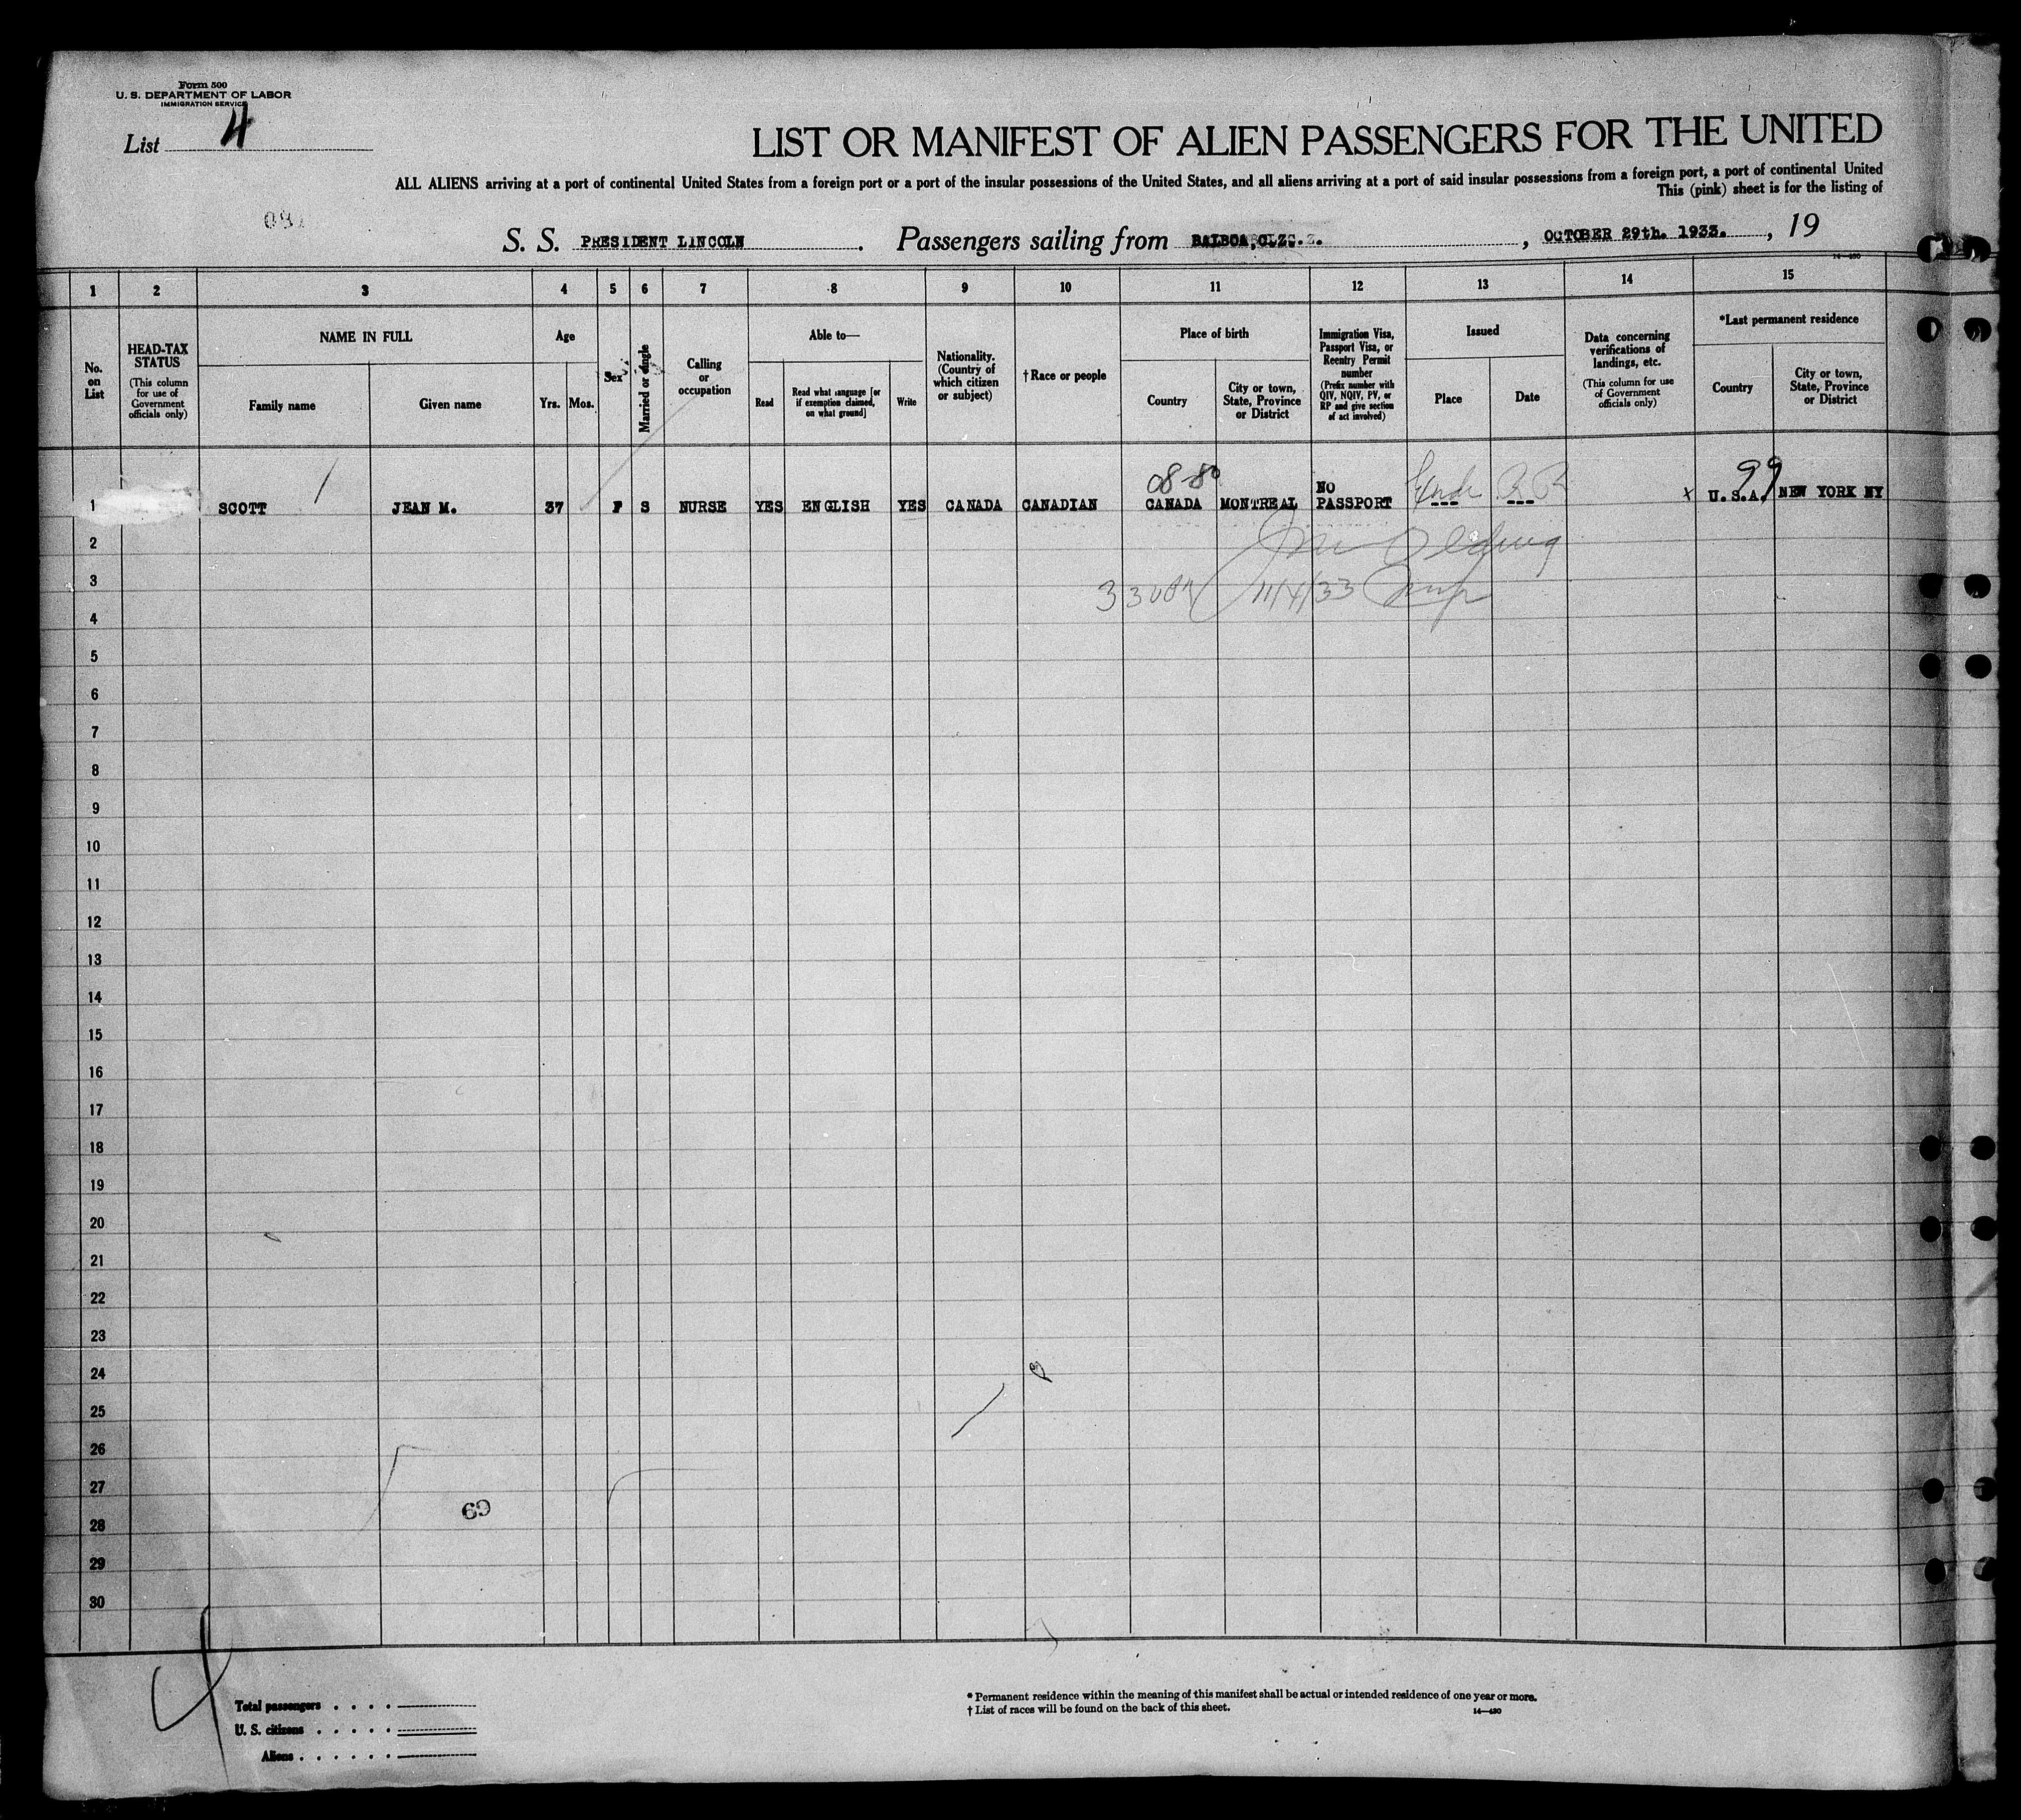 Form 500
U. S. DEPARTMENT OF LABOR
IMMIGRATION SERVICE
List 4
LIST OR MANIFEST OF ALIEN PASSENGERS FOR THE UNITED
ALL ALIENS arriving at a port of continental United States from a foreign port or a port of the insular possessions of the United States, and all aliens arriving at a port of said insular possessions from a foreign port, a port of continental United
This (pink) sheet is for the listing of
S. S. PRESIDENT LINCOLN. Passengers sailing from BALBOA, , OCTOBER 29th. 1933. , 19
14—430
1 2 3 4 5 6 7 8 9 10 11 12 13 14 15
No. on List
HEAD-TAX STATUS
(This column for use of Government officials only)
NAME IN FULL
Family name
Given name
Age
Yrs.
Mos.
Sex
Married or single
Calling or occupation
Able to—
Read
Read what language [or if exemption claimed, on what ground]
Write
Nationality. (Country of which citizen or subject)
†Race or people
Place of birth
Country
City or town, State, Province or District
Immigration Visa, Passport Visa, or Reentry Permit number
(Prefix number with QIV, NQIV, PV, or RP and give section of act involved)
Issued
Place
Date
Data concerning verifications of landings, etc.
(This column for use of Government officials only)
*Last permanent residence
Country
City or town, State, Province or District
08-80
99
1 SCOTT JEAN M. 37 F S NURSE YES ENGLISH YES CANADA CANADIAN CANADA MONTREAL NO PASSPORT --- --- x U.S.A. NEW YORK NY
2
3
11/4/33
4
5
6
7
8
9
10
11
12
13
14
15
16
17
18
19
20
21
22
23
24
25
26
27
69
28
29
30
4
Total passengers
U. S. citizens
Aliens
* Permanent residence within the meaning of this manifest shall be actual or intended residence of one year or more.
† List of races will be found on the back of this sheet.
14—430